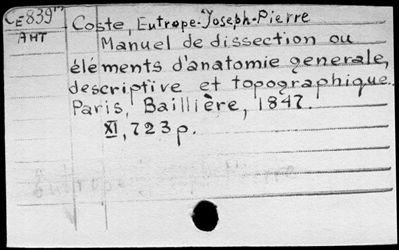 CE839
AHT
Coste, Eutrope-Joseph-Pierre
Manuel de dissection ou
éléments d'anatomie generale,
descriptive et topographique.
Paris, Baillière, 1847.
XI, 723p.